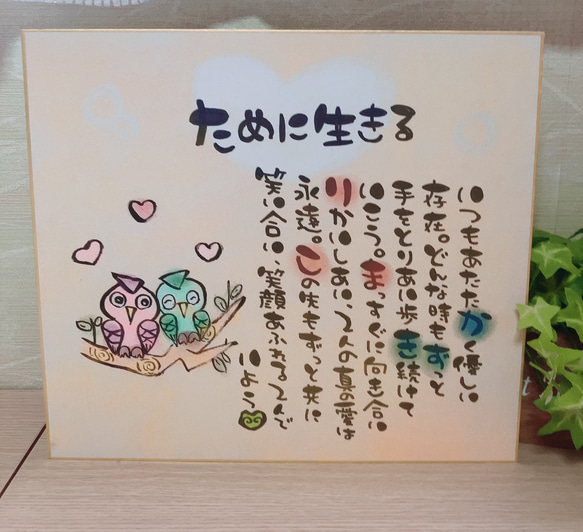 ために生きる
いつもあたたかく優しい
存在。どんな時もずっと
手をとりあい歩き続けて
いこう。まっすぐに向き合い
りかいしあい、2人の真の愛は
永遠。この先もずっと共に
笑い合い、笑顔あふれる2人で
いよう